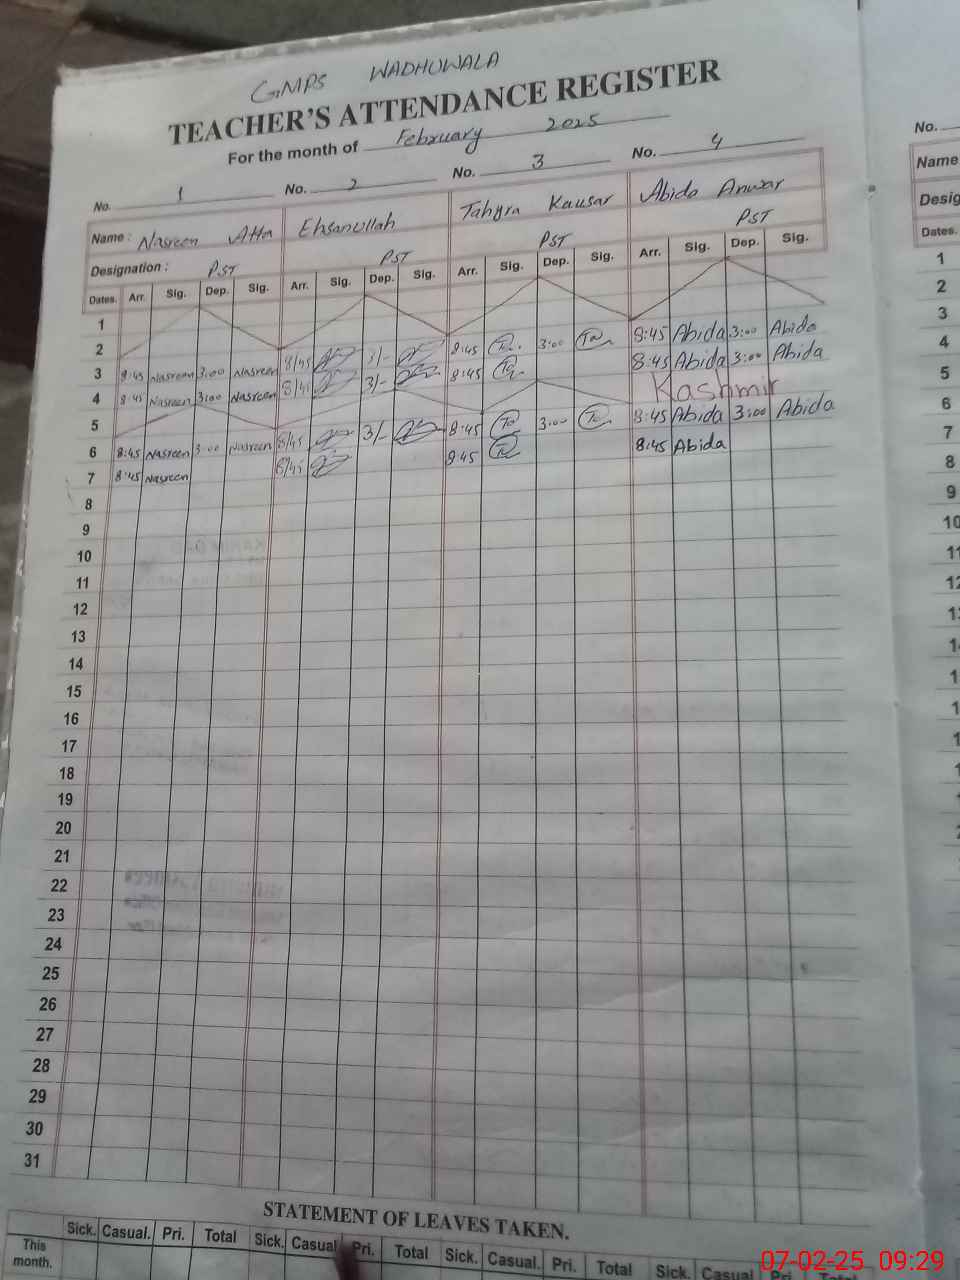 GMPS WADHUWALA
TEACHER'S ATTENDANCE REGISTER
For the month of February 2025
No. 1 No. 2 No. 3 No. 4
Name : Nasreen Atta Ehsanullah Tahyra Kausar Abida Anwar
Designation : PST PST PST PST
Dates. Arr. Sig. Dep. Sig. Arr. Sig. Dep. Sig. Arr. Sig. Dep. Sig. Arr. Sig. Dep. Sig.
1
2
3 8:45 Nasreen 3:00 Nasreen 8/45 3/- 8:45 3:00 8:45 Abida 3:00 Abida
4 8:45 Nasreen 3:00 Nasreen 8/45 3/- 8:45 8:45 Abida 3:00 Abida
5 Kashmir
6 8:45 Nasreen 3:00 Nasreen 8/45 3/- 8:45 3:00 8:45 Abida 3:00 Abida
7 8:45 Nasreen 8/45 8:45 8:45 Abida
8
9
10
11
12
13
14
15
16
17
18
19
20
21
22
23
24
25
26
27
28
29
30
31
STATEMENT OF LEAVES TAKEN.
Sick. Casual. Pri. Total Sick. Casual Pri. Total Sick. Casual. Pri. Total Sick. Casual Pri. Total
This month.
No.
Name
Desig
Dates.
1
2
3
4
5
6
7
8
9
10
07-02-25 09:29